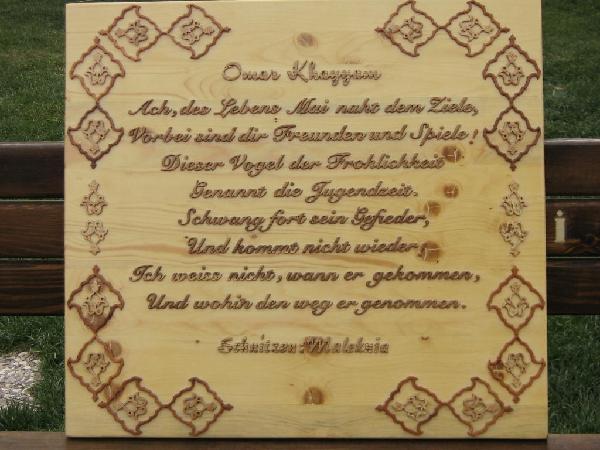 Omar Khayyam
Ach, des Lebens Mai naht dem Ziele,
Vorbei sind dir Freunden und Spiele!
Dieser Vogel der Frohlichkeit
Genannt die Jugendzeit.
Schwang fort sein Gefieder,
Und kommt nicht wieder,
Ich weiss nicht, wann er gekommen,
Und wohin den weg er genommen.
Schnitzen: Maleknia